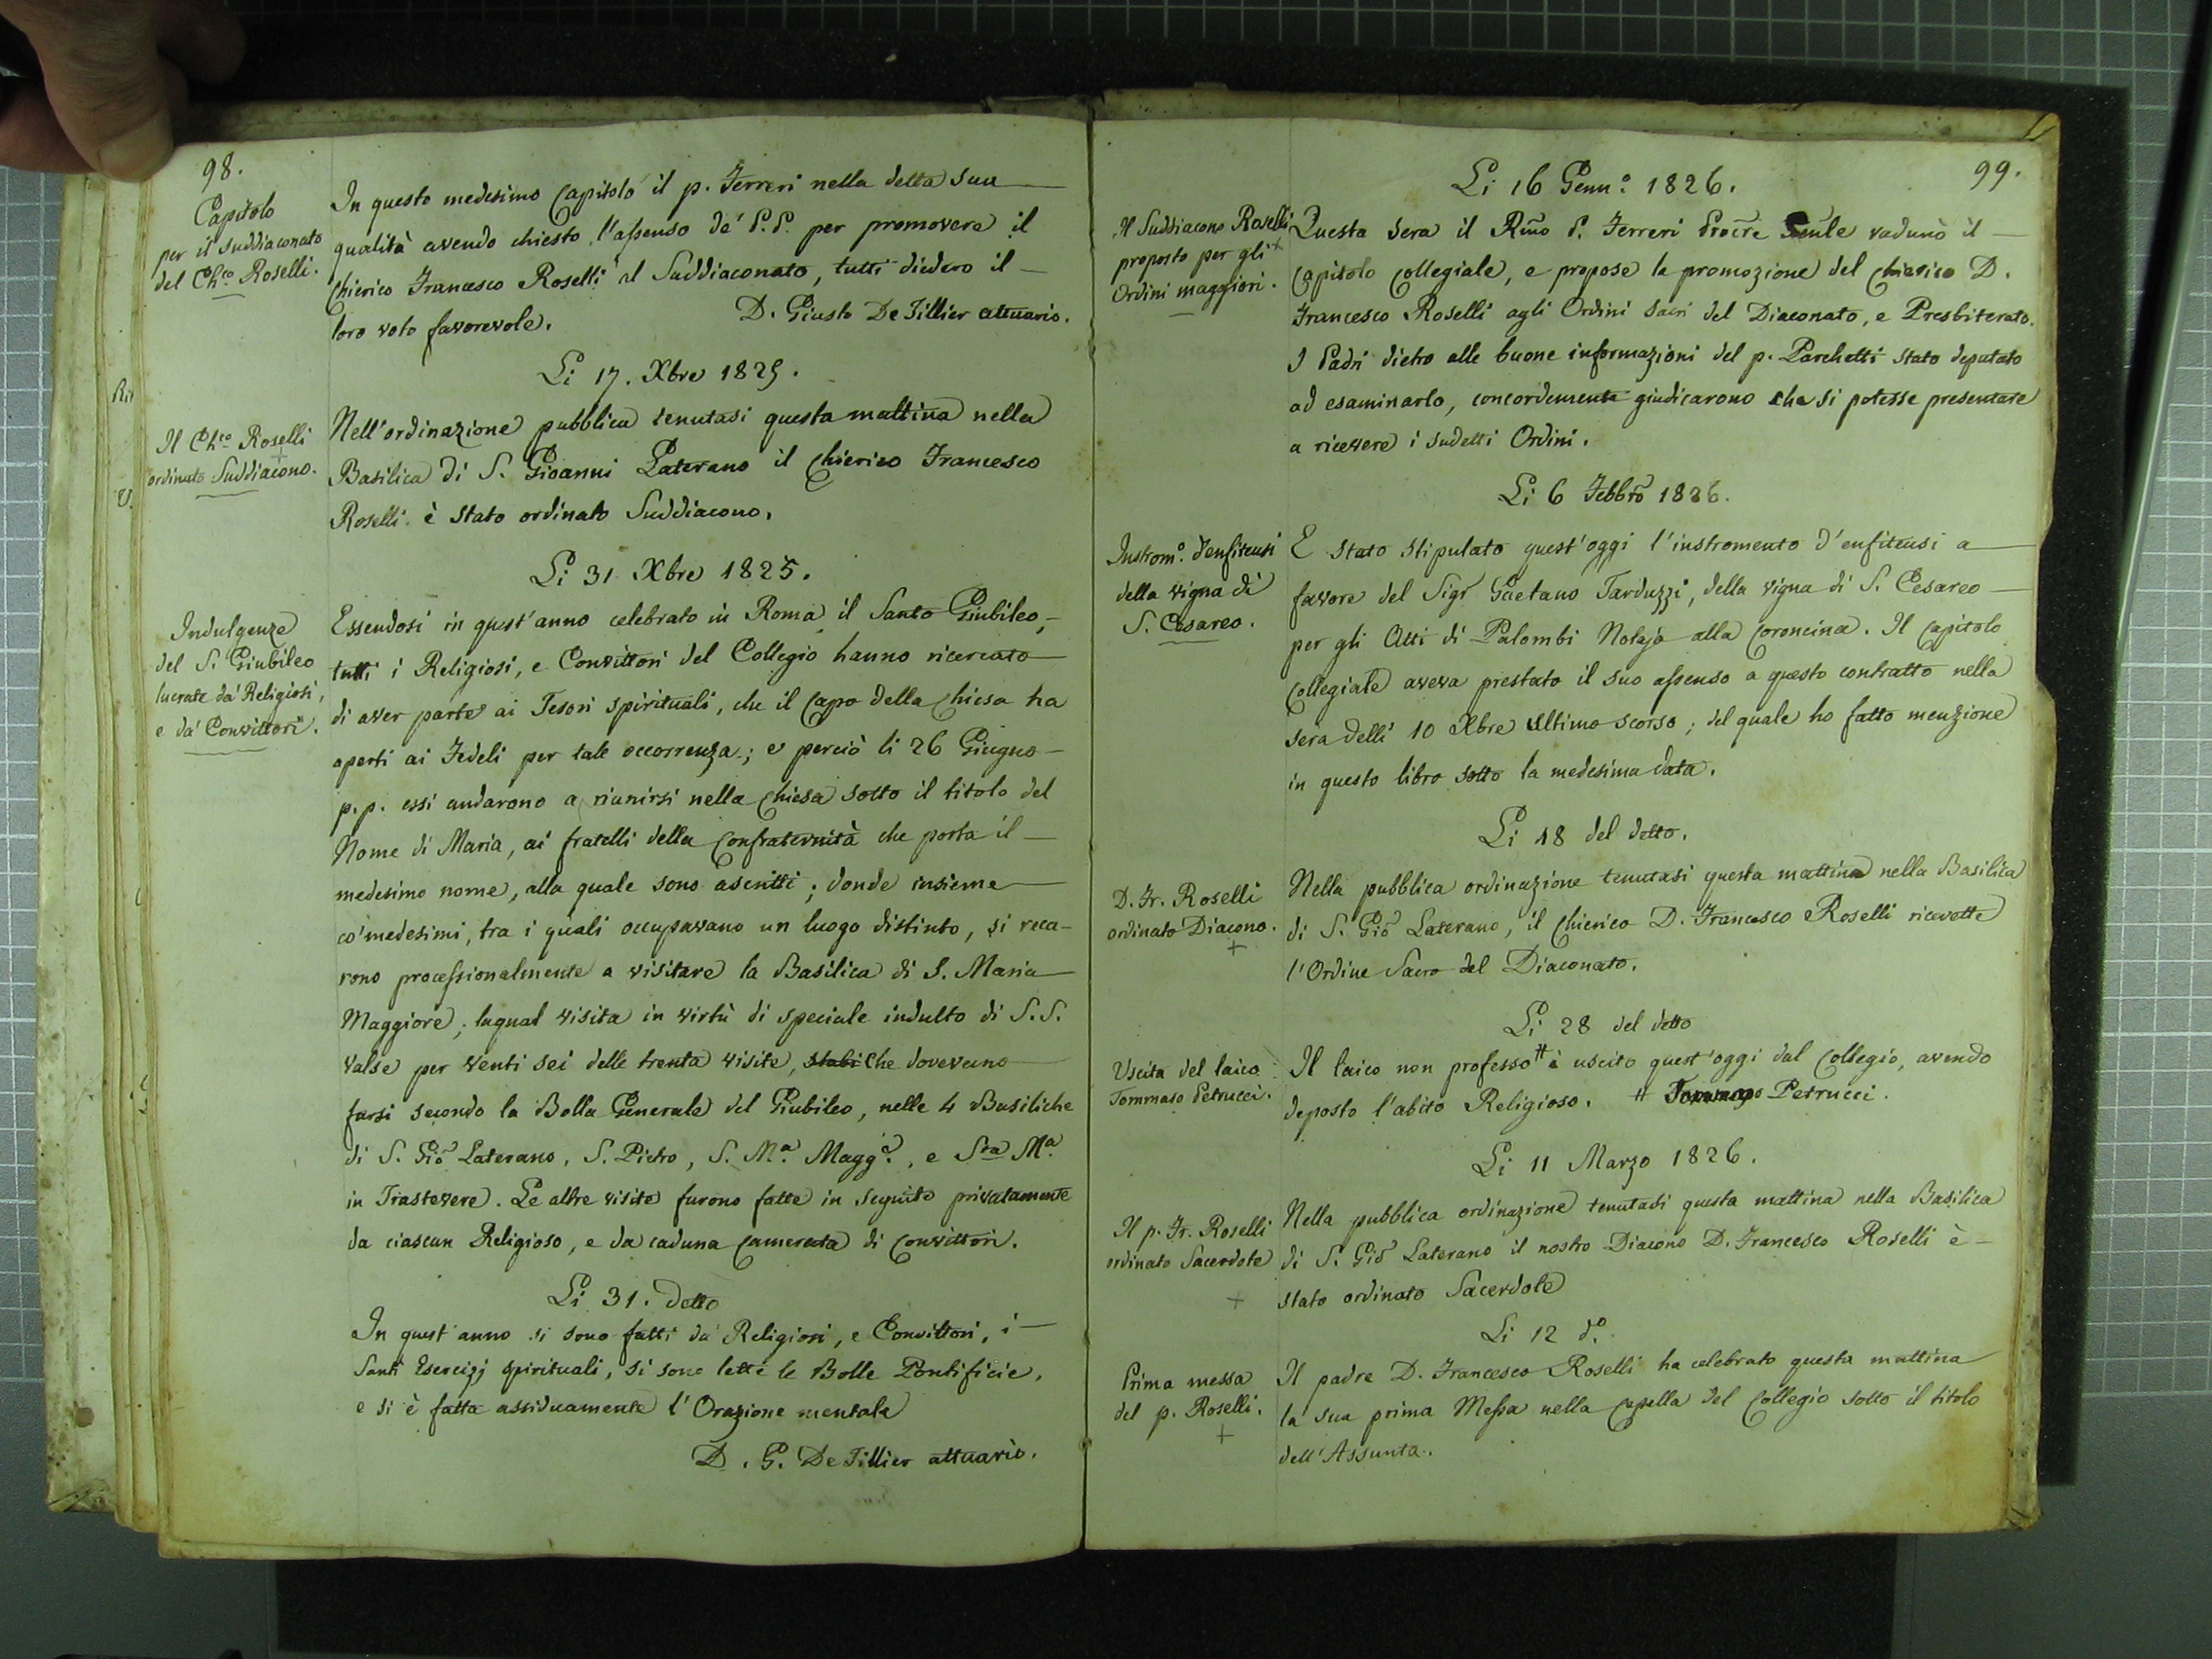 98.
Capitolo
per il suddiaconato
del Chco. Roselli.
In questo medesimo Capitolo il p. Ferreri nella detta sua
qualità avendo chiesto l'assenso de' P.P. per promovere il
Chierico Francesco Roselli al Suddiaconato, tutti diedero il
loro voto favorevole.
D. Giusto De Tillier attuario.
Li 17. Xbre 1825.
Il Chco. Roselli
ordinato Suddiacono.
Nell'ordinazione pubblica tenutasi questa mattina nella
Basilica di S. Gioanni Laterano il Chierico Francesco
Roselli è stato ordinato Suddiacono.
Li 31 Xbre 1825.
Indulgenze
del S. Giubileo
lucrate da' Religiosi,
e da' Convittori.
Essendosi in quest'anno celebrato in Roma il Santo Giubileo,
tutti i Religiosi, e Convittori del Collegio hanno ricercato
di aver parte ai Tesori spirituali, che il Capo della Chiesa ha
aperti ai Fedeli per tale occorrenza; e perciò li 26 Giugno
p.p. essi andarono a riunirsi nella Chiesa sotto il titolo del
Nome di Maria, ai fratelli della Confraternità che porta il
medesimo nome, alla quale sono ascritti; donde insieme
co' medesimi, tra i quali occupavano un luogo distinto, si reca-
rono processionalmente a visitare la Basilica di S. Maria
Maggiore; laqual visita in virtù di speciale indulto di S.S.
valse per venti sei delle trenta visite, che dovevano
farsi secondo la Bolla Generale del Giubileo, nelle 4 Basiliche
di S. Gio Laterano, S. Pietro, S. Ma. Magge., e Sta Ma.
in Trastevere. Le altre visite furono fatte in seguito privatamente
da ciascun Religioso, e da caduna Camerata di Convittori.
Li 31. detto
In quest'anno si sono fatti da' Religiosi, e Convittori, i
Santi Esercizj spirituali, si sono lette le Bolle Pontificie,
e si è fatta assiduamente l'Orazione mentale
D. G. De Tillier attuario.
99.
Li 16 Genn.o 1826.
Il Suddiacono Roselli
proposto per gli
Ordini maggiori.
Questa sera il Rmo P. Ferreri Procre radunò il
Capitolo Collegiale, e propose la promozione del Chierico D.
Francesco Roselli agli Ordini sacri del Diaconato, e Presbiterato.
I Padri dietro alle buone informazioni del p. Parchetti stato deputato
ad esaminarlo, concordemente giudicarono che si potesse presentare
a ricevere i sudetti Ordini.
Li 6 Febbro 1826.
Instrom.o d'enfiteusi
della vigna di
S. Cesareo.
E stato stipulato quest'oggi l'instromento d'enfiteusi a
favore del Sigr Gaetano Tarduzzi, della vigna di S. Cesareo
per gli Atti di Palombi Notajo alla Coroncina. Il Capitolo
Collegiale aveva prestato il suo assenso a questo contratto nella
sera delli 10 Xbre ultimo scorso; del quale ho fatto menzione
in questo libro sotto la medesima data.
Li 18 del detto.
D. Fr. Roselli
ordinato Diacono.
+
Nella pubblica ordinazione tenutasi questa mattina nella Basilica
di S. Gio Laterano, il Chierico D. Francesco Roselli ricevette
l'Ordine Sacro del Diaconato.
Li 28 del detto
Uscita del laico
Tommaso Petrucci.
Il laico non professo # è uscito quest'oggi dal Collegio, avendo
deposto l'abito Religioso. # Tommaso Petrucci.
Li 11 Marzo 1826.
Il p. Fr. Roselli
ordinato Sacerdote
+
Nella pubblica ordinazione tenutasi questa mattina nella Basilica
di S. Gio Laterano il nostro Diacono D. Francesco Roselli è
stato ordinato Sacerdote
Li 12 do.
Prima messa
del p. Roselli.
+
Il padre D. Francesco Roselli ha celebrato questa mattina
la sua prima Messa nella Capella del Collegio sotto il titolo
dell'Assunta.